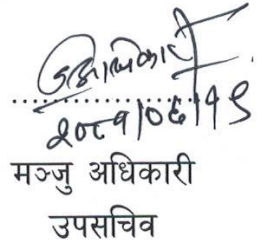 २०८१।०६।१९
मञ्जु अधिकारी
उपसचिव